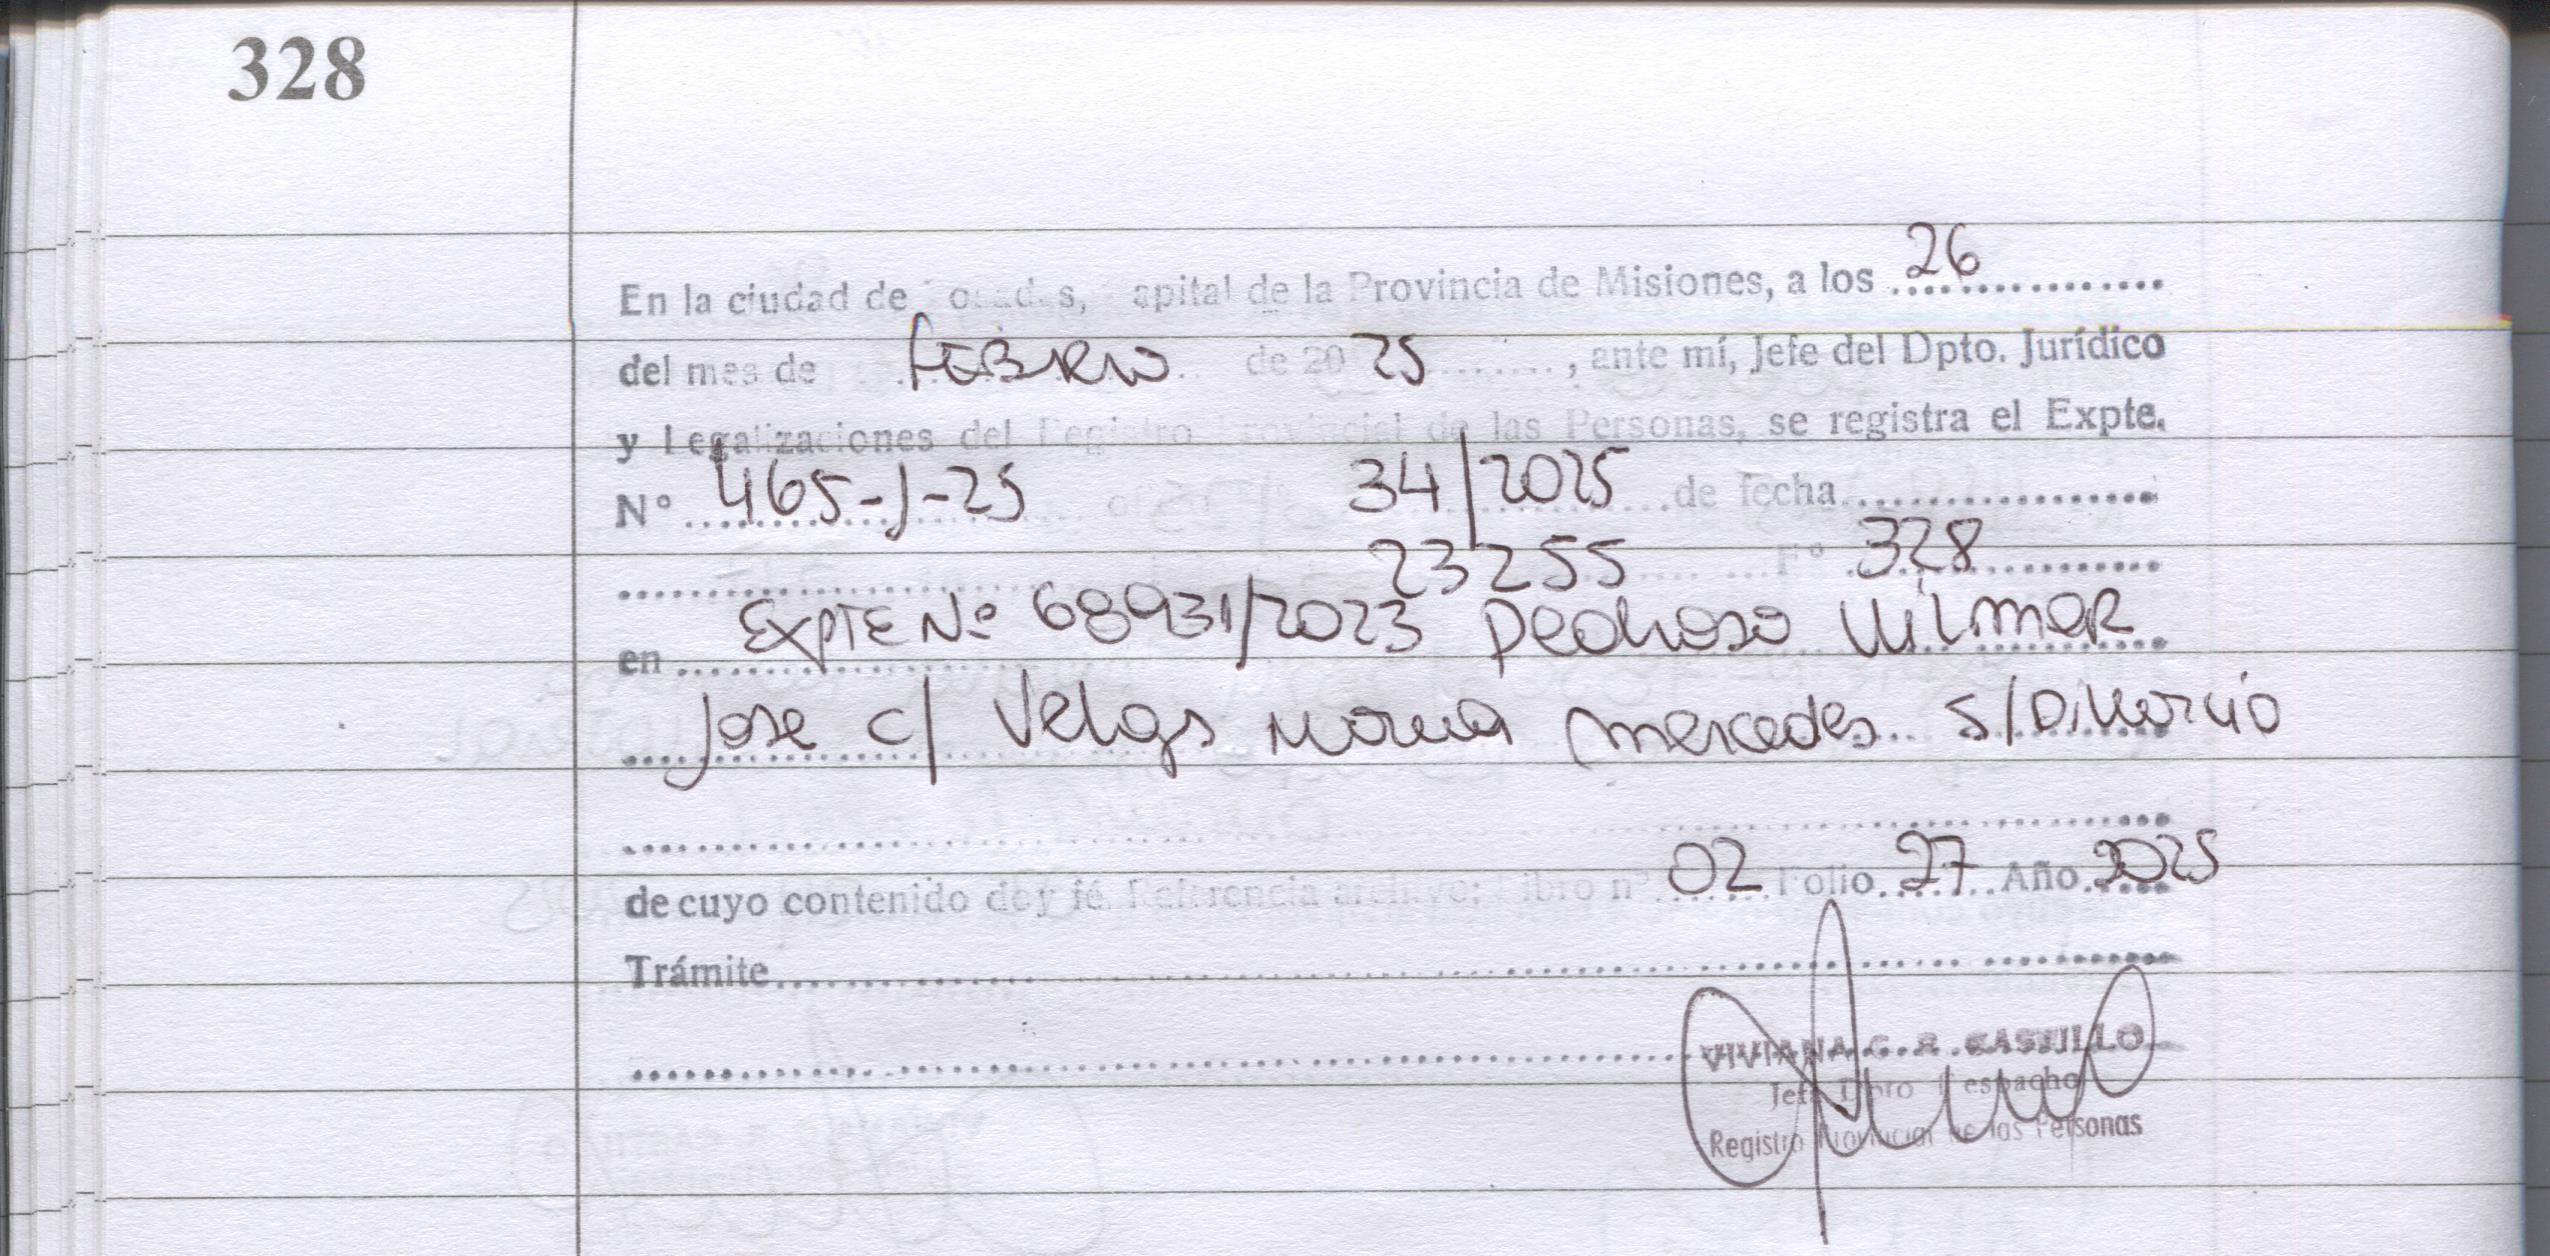 328
En la ciudad de Posadas, Capital de la Provincia de Misiones, a los 26
del mes de febrero de 2025, ante mí, Jefe del Dpto. Jurídico
y Legalizaciones del Registro Provincial de las Personas, se registra el Expte.
N° 465-J-25 34/2025 de fecha
23255 F° 328
en Expte Nº 68931/2023 Pedroso Wilmar
Jose c/ Velgs Norma mercedes s/Divorcio
de cuyo contenido doy fé. Referencia archivo: Libro nº 02 Folio 27 Año 2025
Trámite
VIVIANA G. R. CASTILLO
Jefe Dpto Despacho
Registro Provincial de las Personas